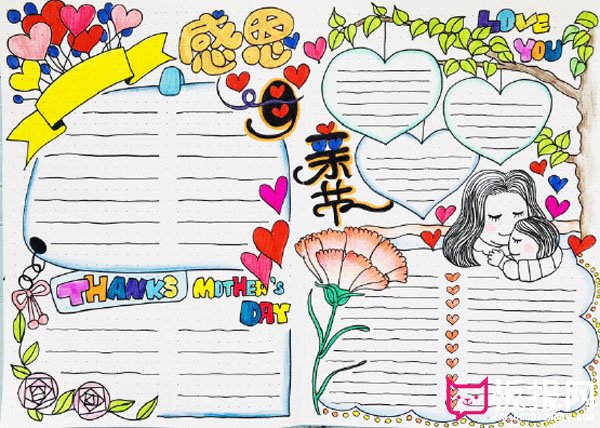 感恩
母
亲节
LOVE
YOU
THANKS MOTHER'S
DAY
板报网